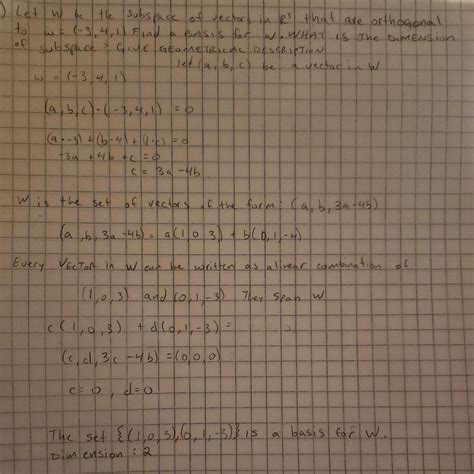 ) Let W be the subspace of vectors in R³ that are orthogonal
to w = (-3,4,1) Find a BASIS for W. WHAT IS THE DIMENSION
of subspace? GIVE GEOMETRICAL DESCRIPTION
let (a, b, c) be a vector in W
w = (-3,4,1)
(a,b,c)·(-3,4,1) = 0
(a·-3)+(b·4)+(1·c)=0
-3a +4b +c = 0
c = 3a -4b
W is the set of vectors of the form: (a, b, 3a-4b)
(a, b, 3a-4b) = a(1 0 3) + b(0,1,-4)
Every VECTOR in W can be written as a linear combination of
(1,0,3) and (0,1,-3) Then span W
c(1,0,3) + d(0,1,-3) =
(c,d,3c-4b) = (0,0,0)
c=0, d=0
The set {(1,0,3),(0,1,-3)} is a basis for W.
Dimension: 2